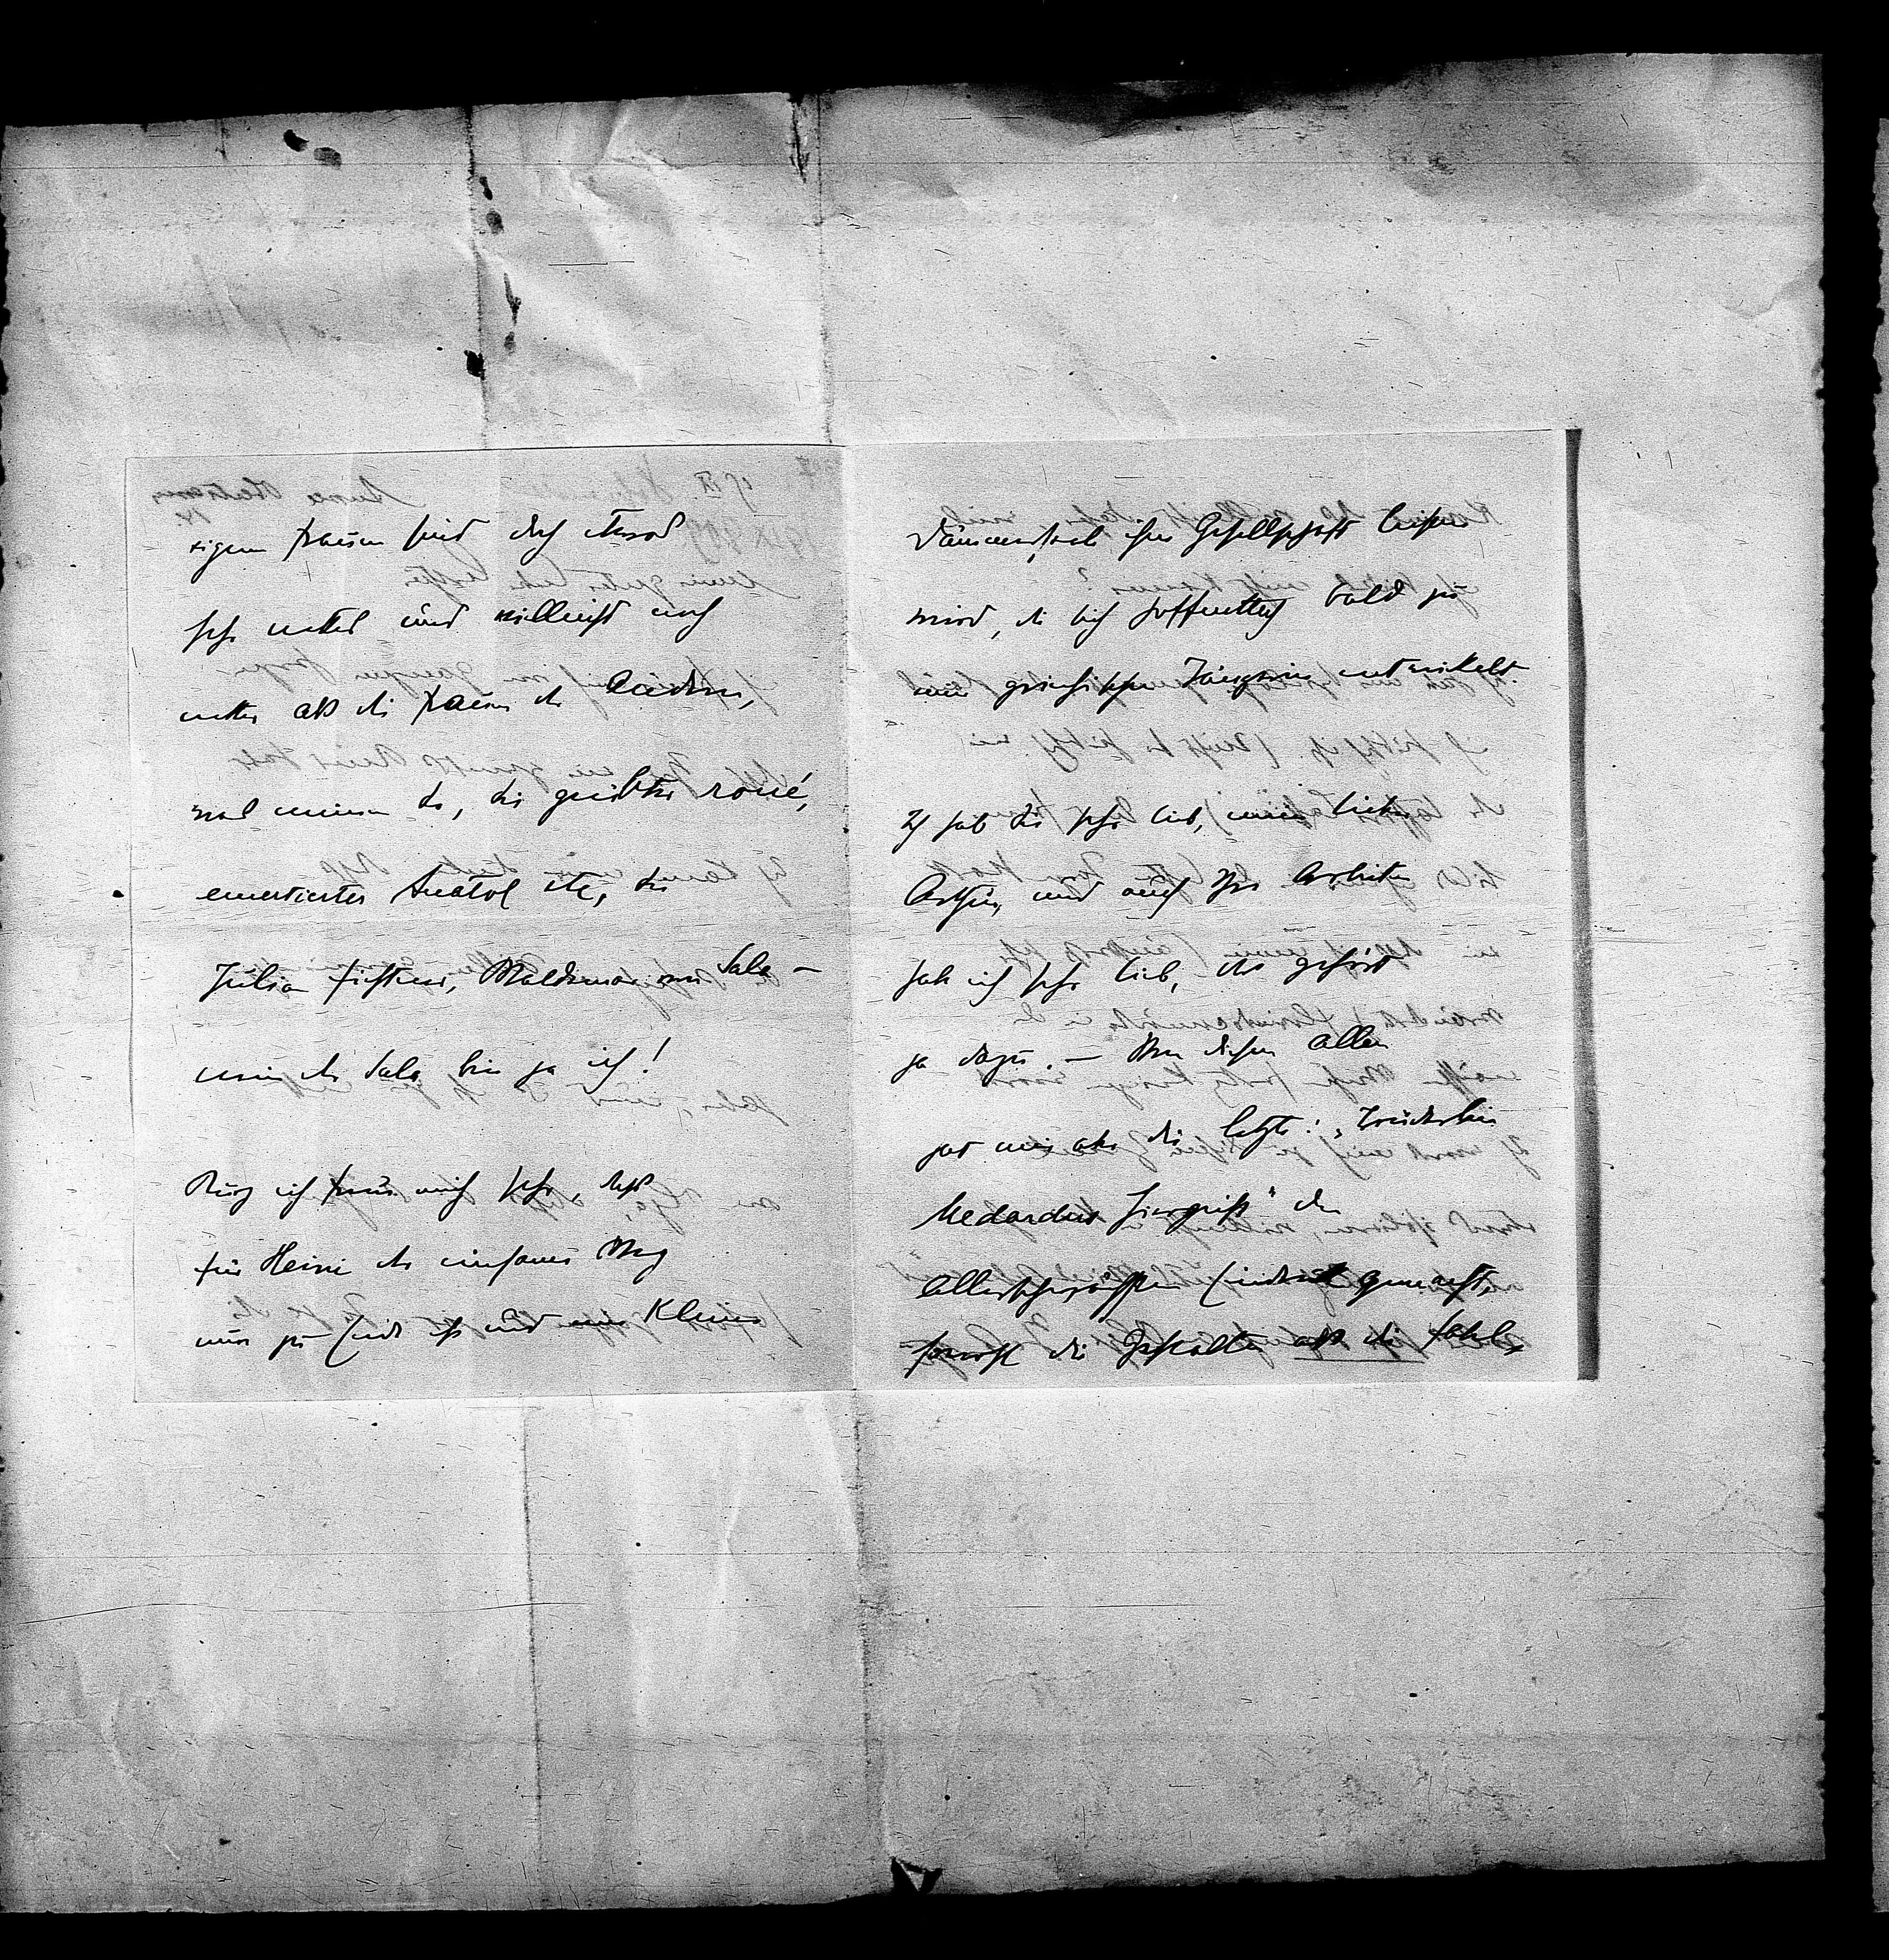 eigenen Frauen sind doch etwas
sehr nettes und vielleicht noch
netter als die Frauen der Andern,
was meinen Sie, Sie geübter roué,
emeritierter Anatol etc, Sie
Julian Fichtner, Waldemar von Sala –
nein der Sala bin ja ich!
Kurz ich freue mich sehr, daß
für Heini der einsame Weg
nun zu Ende ist und eine kleine
Däumerline ihm Gesellschaft leisten
wird, die sich hoffentlich bald zu
einer griechischen Jüngerin entwickelt.
Ich hab Sie sehr lieb, mein lieber
Arthur, und auch Ihre Arbeiten
hab ich sehr lieb, das gehört
ja dazu. – Von diesen allen
hat mir aber die letzte: „
Medardus " den
allerschönsten Eindruck gemacht,
sowohl die Gestalten als die